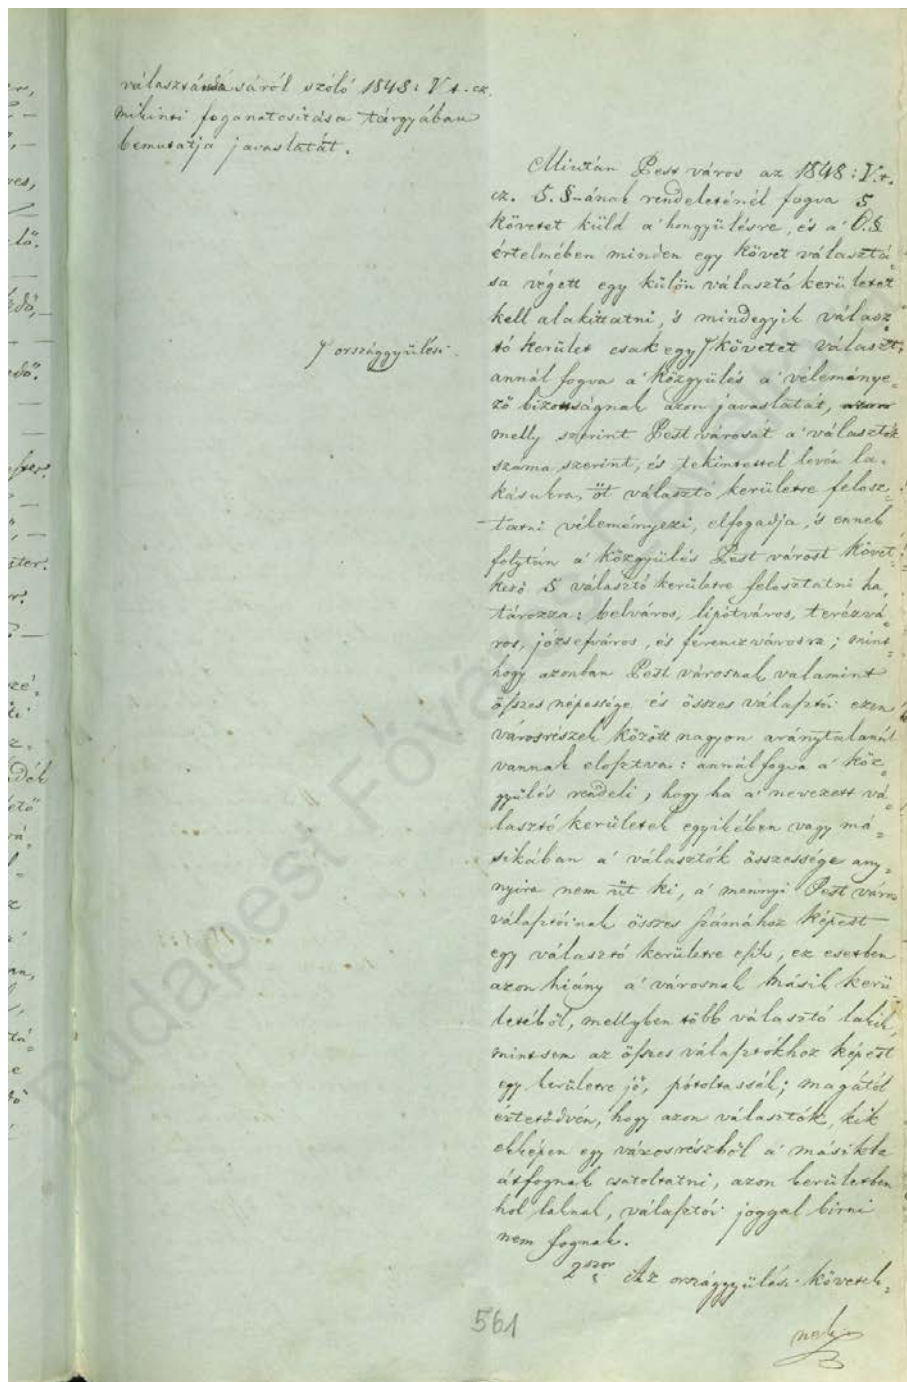 választandásáról szóló 1848: V t. cz.
mikinti foganatositása tárgyában
bemutatja javaslatát.
Miután Pest város az 1848: V t.
cz. 5. §-ának rendeleténél fogva 5
követet küld a' hongyülésre, és a' 6. §
értelmében minden egy követ választá-
sa végett egy külön választó kerületet
kell alakittatni, 's mindegyik válasz-
tó kerület csak egy követet választ,
országgyülési
annál fogva a' közgyülés a' véleménye-
ző bizottságnak azon javaslatát,
melly szerint Pest városát a' választók
száma szerint, és tekintettel lévén la-
kásukra, öt választó kerületre felosz-
tatni véleményezi, elfogadja, 's ennek
folytán a' közgyülés Pest várost követ-
kező 5 választó kerületre felosztatni ha-
tározza: belváros, lipótváros, terézvá-
ros, józsefváros, és ferenczvárosra; mint-
hogy azonban Pest városnak valamint
öszes népessége és összes választói ezen
városrészek között nagyon aránytalanúl
vannak elosztva: annálfogva a' köz-
gyülés rendeli, hogy ha a' nevezett vá-
lasztó kerületek egyikében vagy má-
sikában a' választók összessége any-
nyira nem üt ki, a' mennyi Pest város
választóinak összes számához képest
egy választó kerületre esik, ez esetben
azon hiány a' városnak másik kerü-
letéből, mellyben több választó lakik,
mintsem az öszes választókhoz képest
egy kerületre jő, pótoltassék; magától
értetődvén, hogy azon választók, kik
ekképen egy városrészből a' másikba
átfognak csatoltatni, azon kerületben
hol laknak, választói joggal birni
nem fognak.
2szor Az országgyülési követek-
nek
561
Budapest Főváros